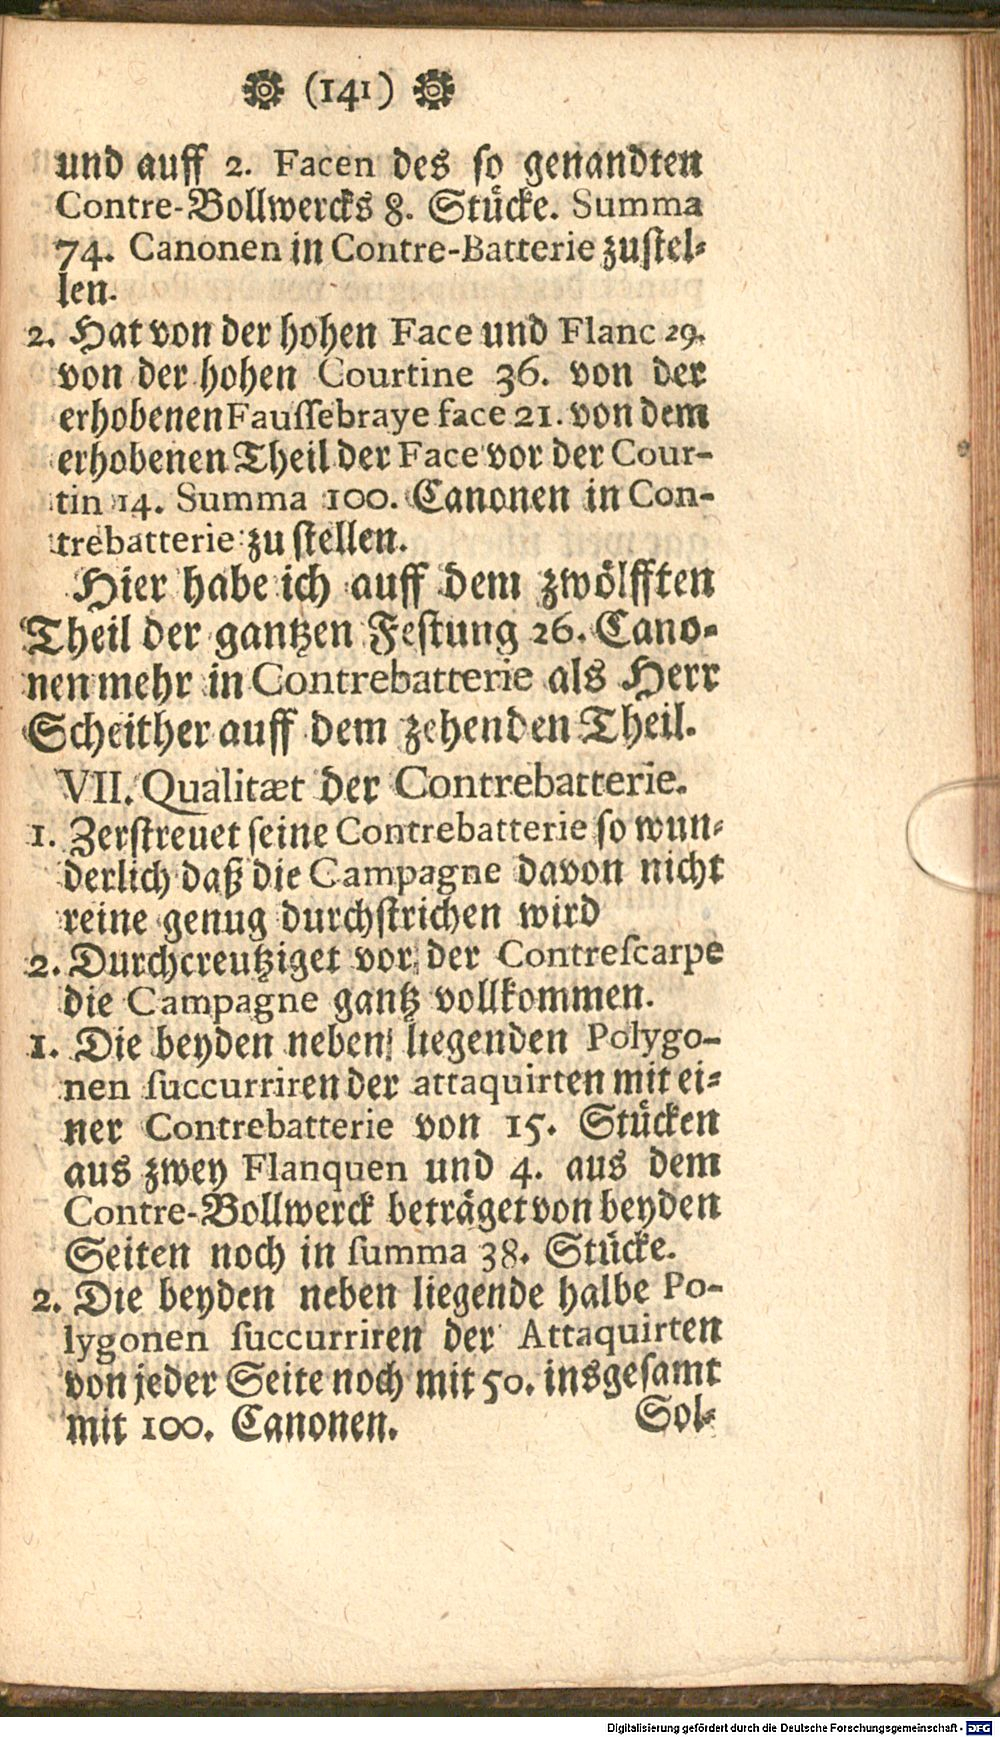 (141)
und auff 2. Facen des so genandten
Contre-Bollwercks 8. Stücke. Summa
74. Canonen in Contre-Batterie zustel-
len.
2. Hat von der hohen Face und Flanc 29.
von der hohen Courtine 36. von der
erhobenen Faussebraye face 21. von dem
erhobenen Theil der Face vor der Cour-
tin 14. Summa 100. Canonen in Con-
trebatterie zu stellen.
Hier habe ich auff dem zwölfften
Theil der gantzen Festung 26. Cano-
nen mehr in Contrebatterie als Herr
Scheither auff dem zehenden Theil.
VII. Qualitæt der Contrebatterie.
1. Zerstreuet seine Contrebatterie so wun-
derlich daß die Campagne davon nicht
reine genug durchstrichen wird
2. Durchcreutziget vor der Contrescarpe
die Campagne gantz vollkommen.
1. Die beyden neben liegenden Polygo-
nen succurriren der attaquirten mit ei-
ner Contrebatterie von 15. Stücken
aus zwey Flanquen und 4. aus dem
Contre-Bollwerck beträget von beyden
Seiten noch in summa 38. Stücke.
2. Die beyden neben liegende halbe Po-
lygonen succurriren der Attaquirten
von jeder Seite noch mit 50. insgesamt
mit 100. Canonen.
Sol-
Digitalisierung gefördert durch die Deutsche Forschungsgemeinschaft - DFG